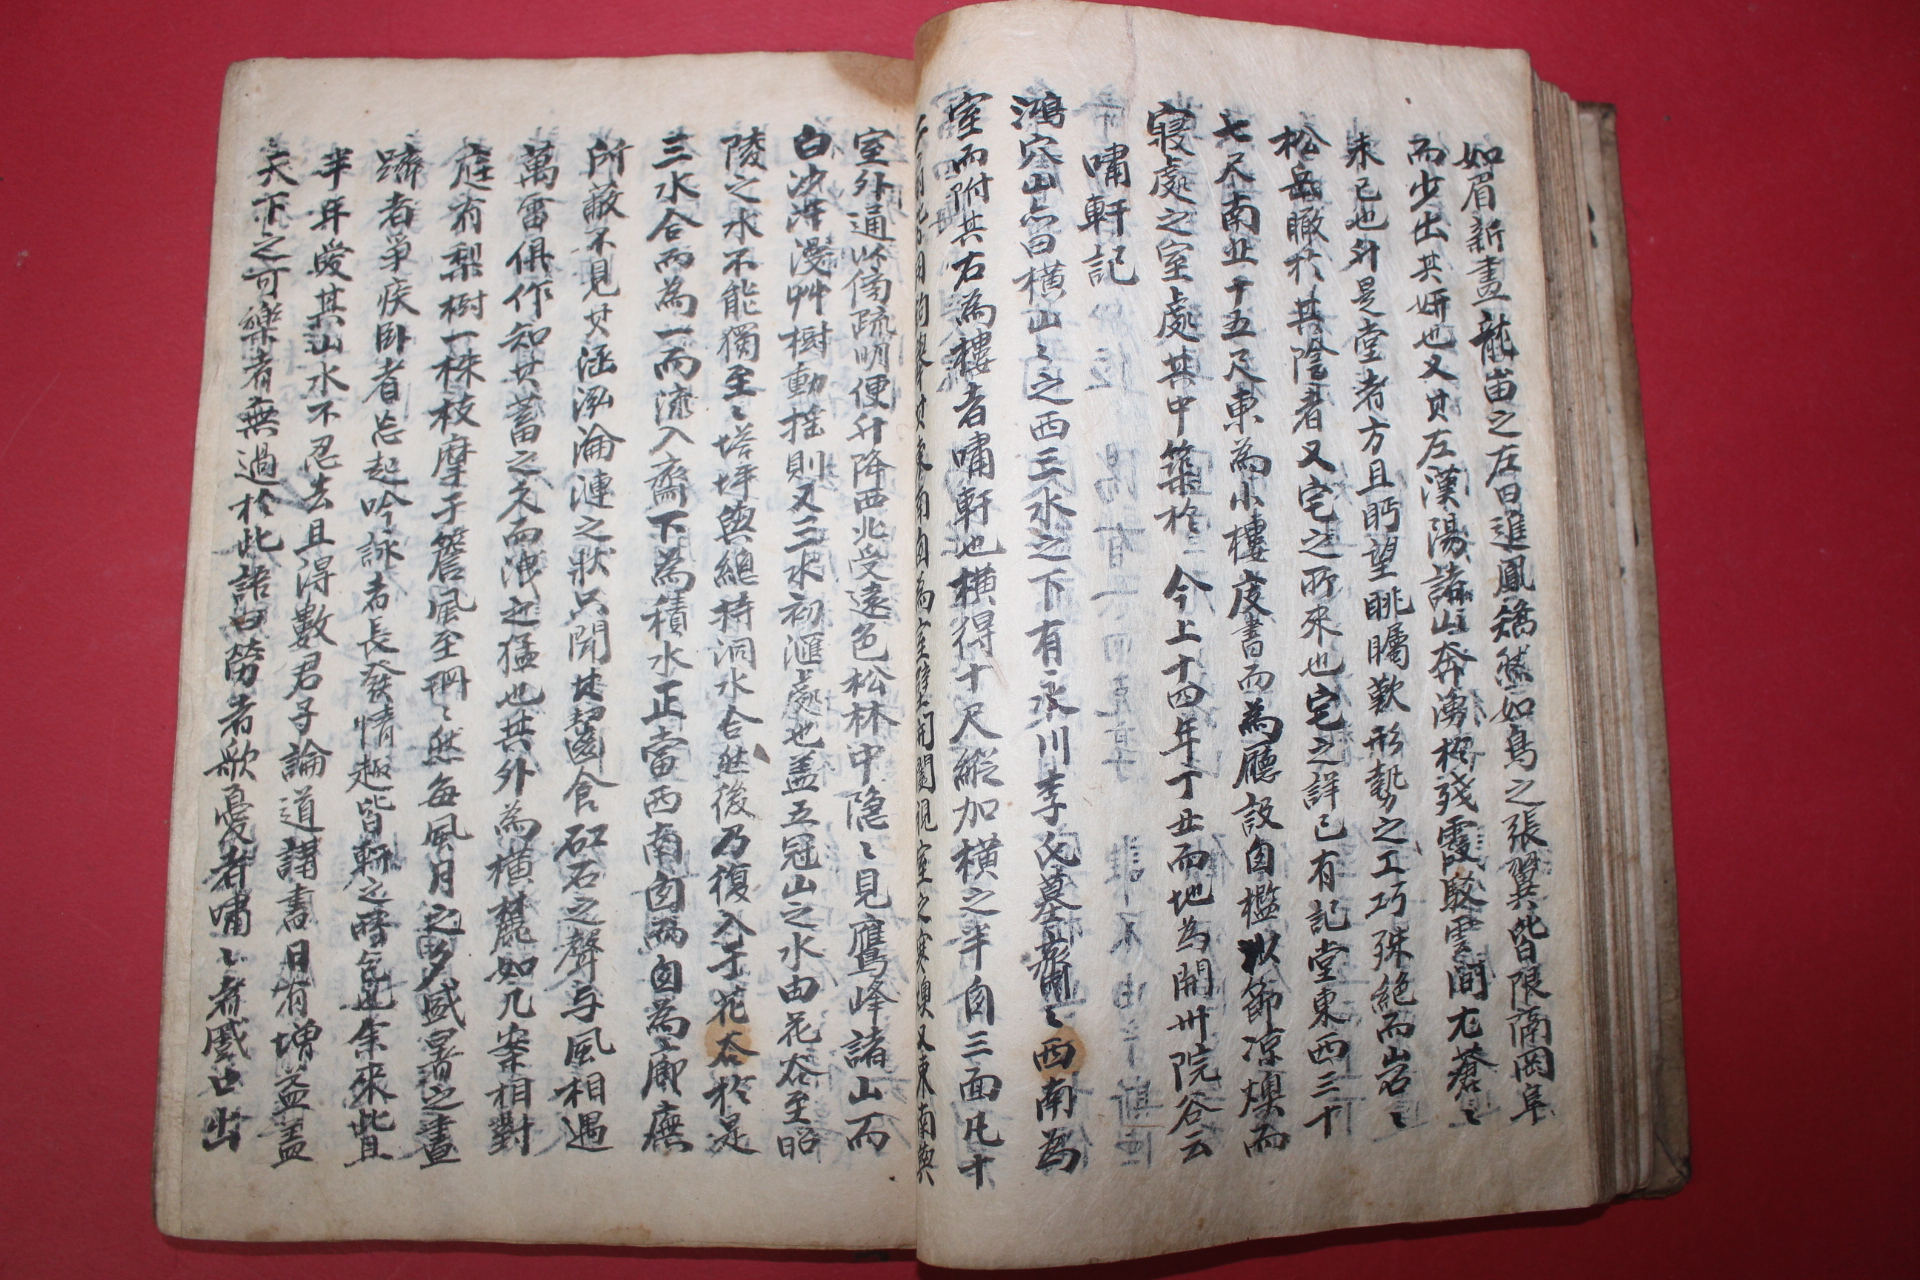 如眉新畫龍岫之左曰進鳳矯然如鳥之張翼皆限南岡阜
而少出其姸也又其左漢陽諸山奔湧核殘霞駁雲間尤蒼〻
未已也升是堂者方且眄望眺矚歎形勢之工巧殊絶而岩〻
松岳瞰於其陰者又宅之所來也宅之詳已有記堂東西三十
七尺南北十五尺東為小樓庋書而為廳設囱檻以節凉燠而
寢處之室〻處其中築於 今上十四年丁丑而地為開州院谷云
嘯軒記
鴻穴山亦曰橫山〻之西三水之下有永川李氏墓齋〻西南為
室而附其右為樓者嘯軒也橫得十尺縱加橫之半自三面凡十
室外通以僃疏明便升降西北受遠色松林中隐〻見鷹峰諸山而
白沙漭漫艸樹動搖則又三水初滙處也盖五冠山之水由花谷至昭
陵之水不能獨至〻塔坪與總持洞水合然後乃復入于花谷於是
三水合而為一而流入齋下為積水正當西南囱而囱為廊廡
所蔽不見其涵泓淪漣之狀只聞其齧食矼石之聲与風相遇
萬雷俱作知其蓄之久而洩之猛也其外為橫麓如几案相對
庭有梨樹一株枝摩于簷風至冊〻然每風月之夕盛暑之晝
躋者爭疾卧者忘起吟詠者長發情趣皆軒之勝色也余來此且
半年愛其山水不忍去且得數君子論道講書日有增益盖
天下之可樂者無過於此語曰勞者歌憂者嘯〻者蹙口出